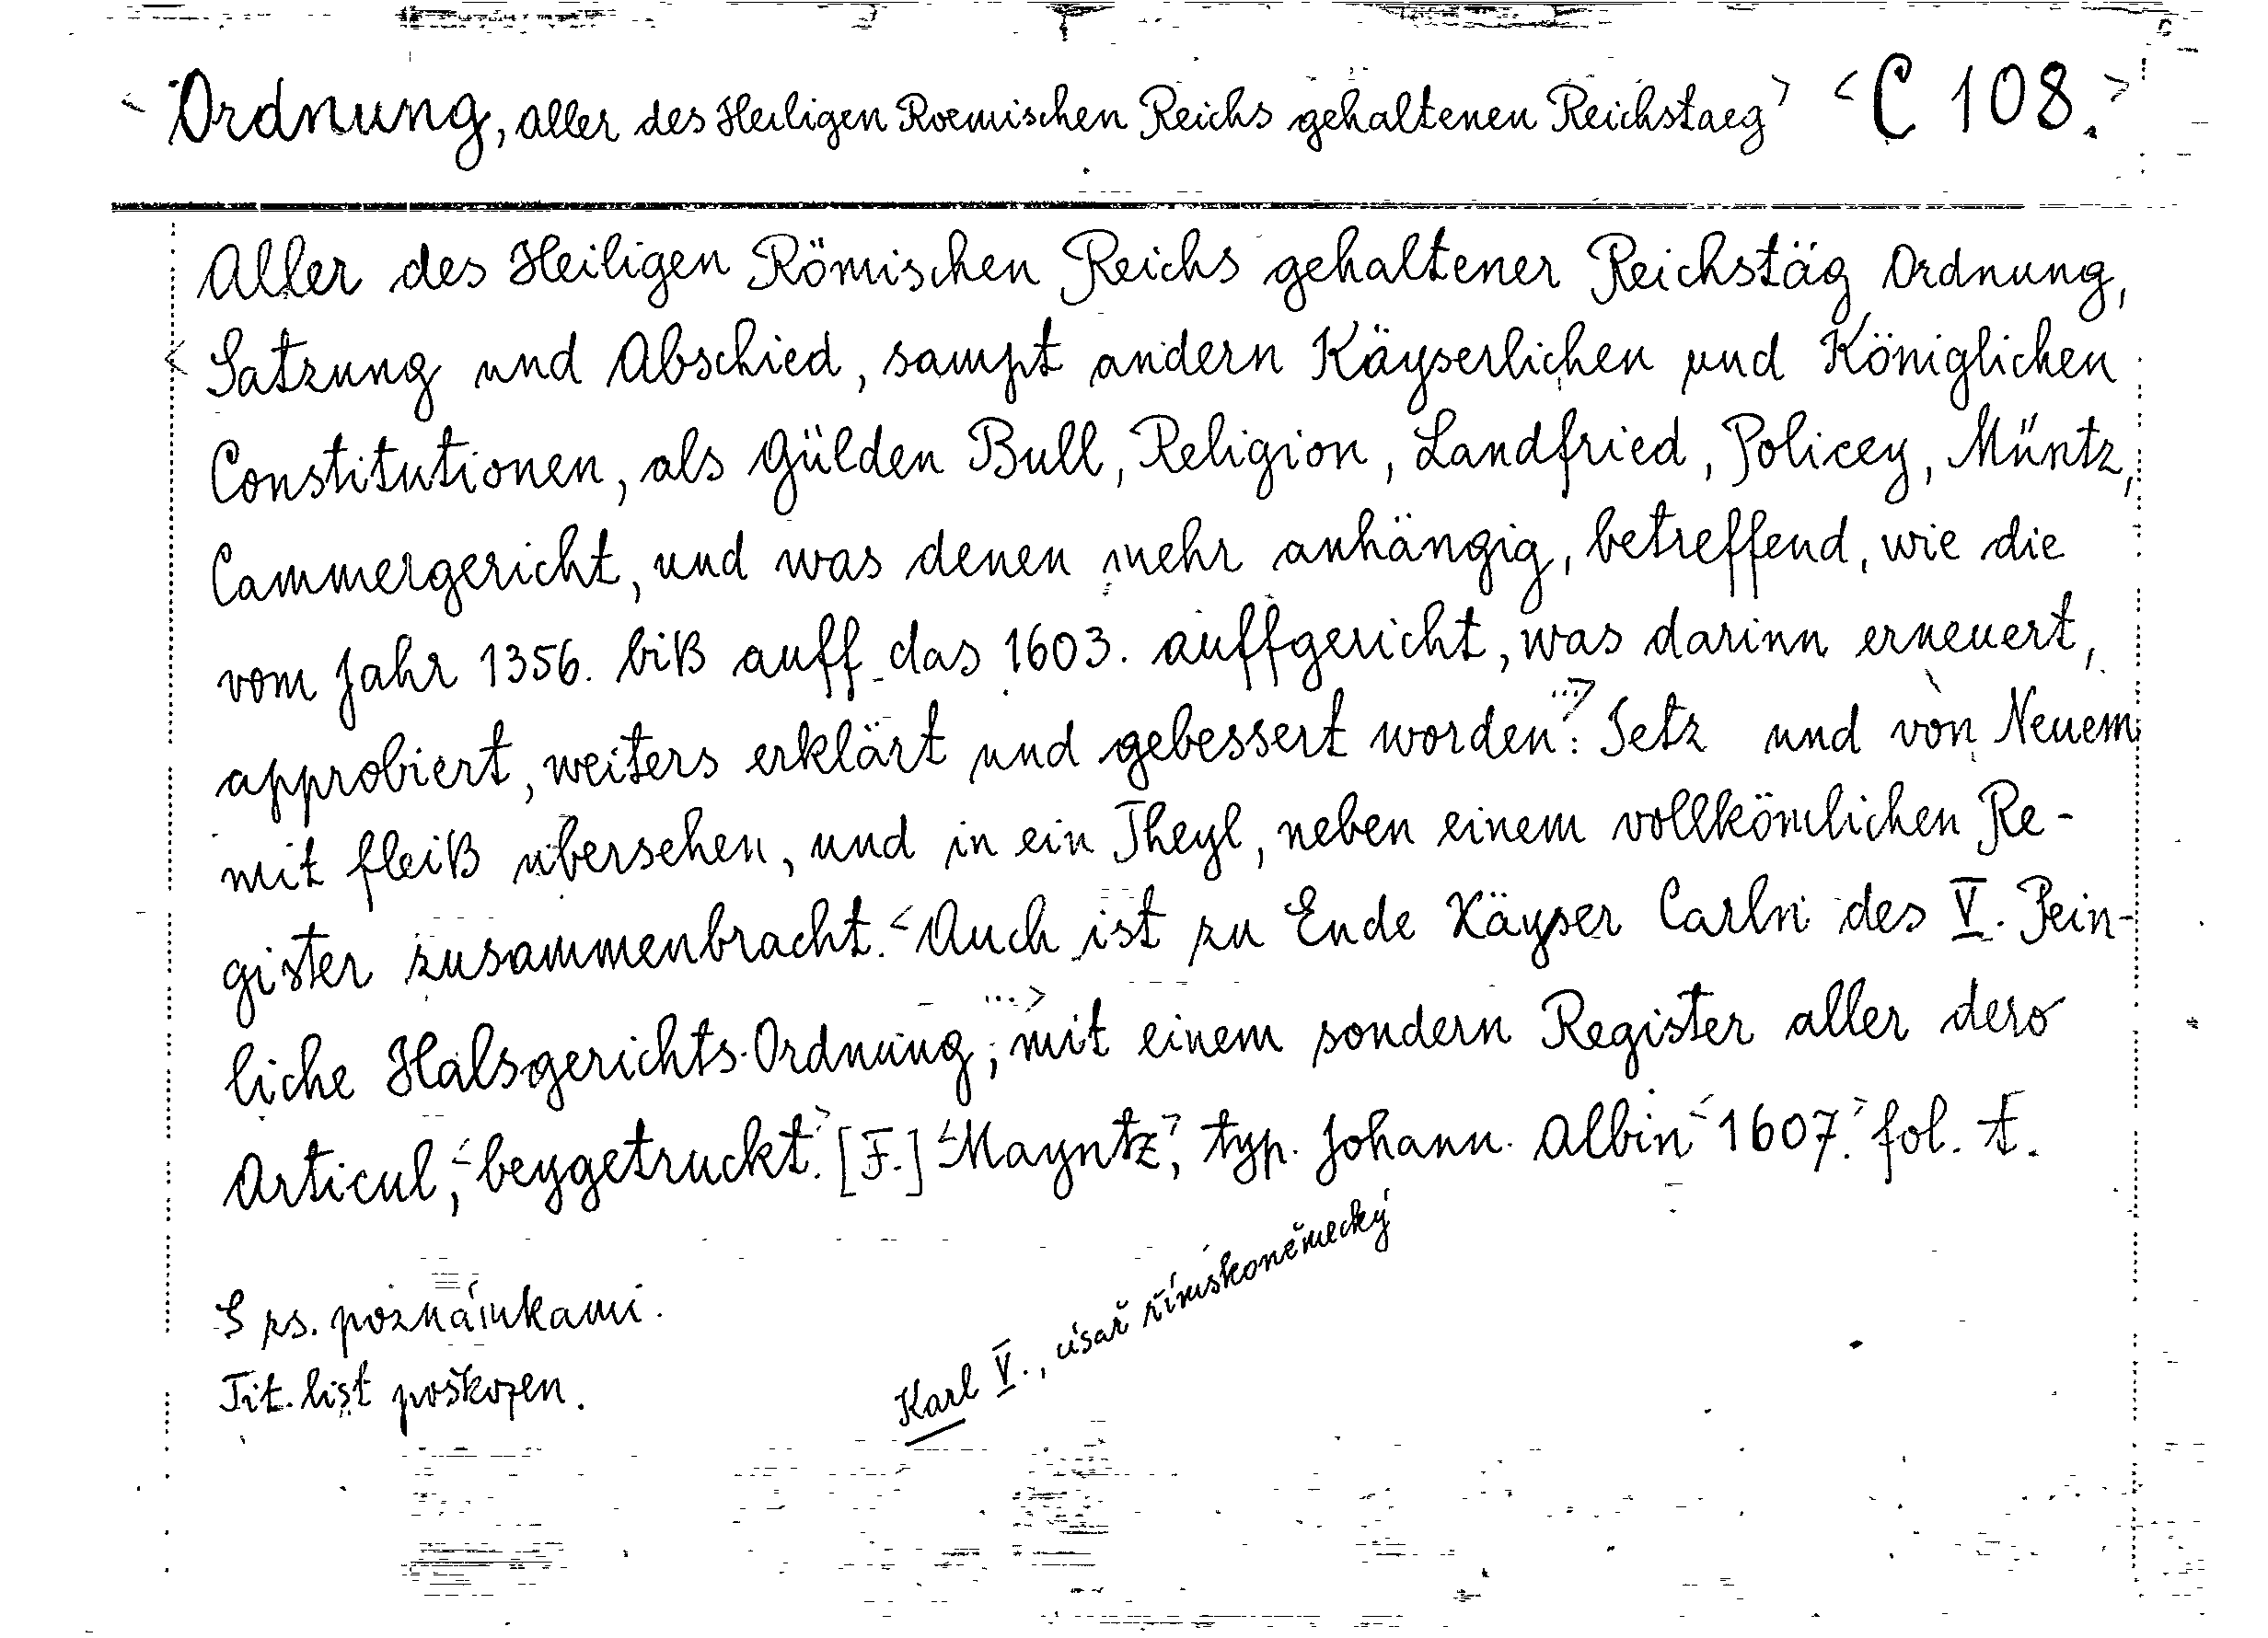 <Ordnung, aller des Heiligen Roemischen Reichs gehaltenen Reichstaeg> <C 108.>
Aller des Heiligen Römischen Reichs gehaltener Reichstäg Ordnung,
<Satzung und Abschied, sampt andern Käyserlichen und Königlichen
Constitutionen, als Gülden Bull, Religion, Landfried, Policey, Müntz,
Cammergericht, und was denen mehr anhängig, betreffend, wie die
vom Jahr 1356. biß auff das 1603. auffgericht, was darinn erneuert,
approbiert, weiters erklärt und gebessert worden...>: Jetz und von Neuem
mit fleiß übersehen, und in ein Theyl, neben einem vollkömlichen Re-
gister zusammenbracht. <Auch ist zu Ende Käyser Carln des V. Pein-
liche Halsgerichts-Ordnung...>, mit einem sondern Register aller dero
Articul, <beygetruckt.> [F.] <Mayntz>, typ. Johann. Albin <1607.> fol. t.
S rs. poznámkami.
Tit. list poškozen.
Karl V., císař římskoněmecký